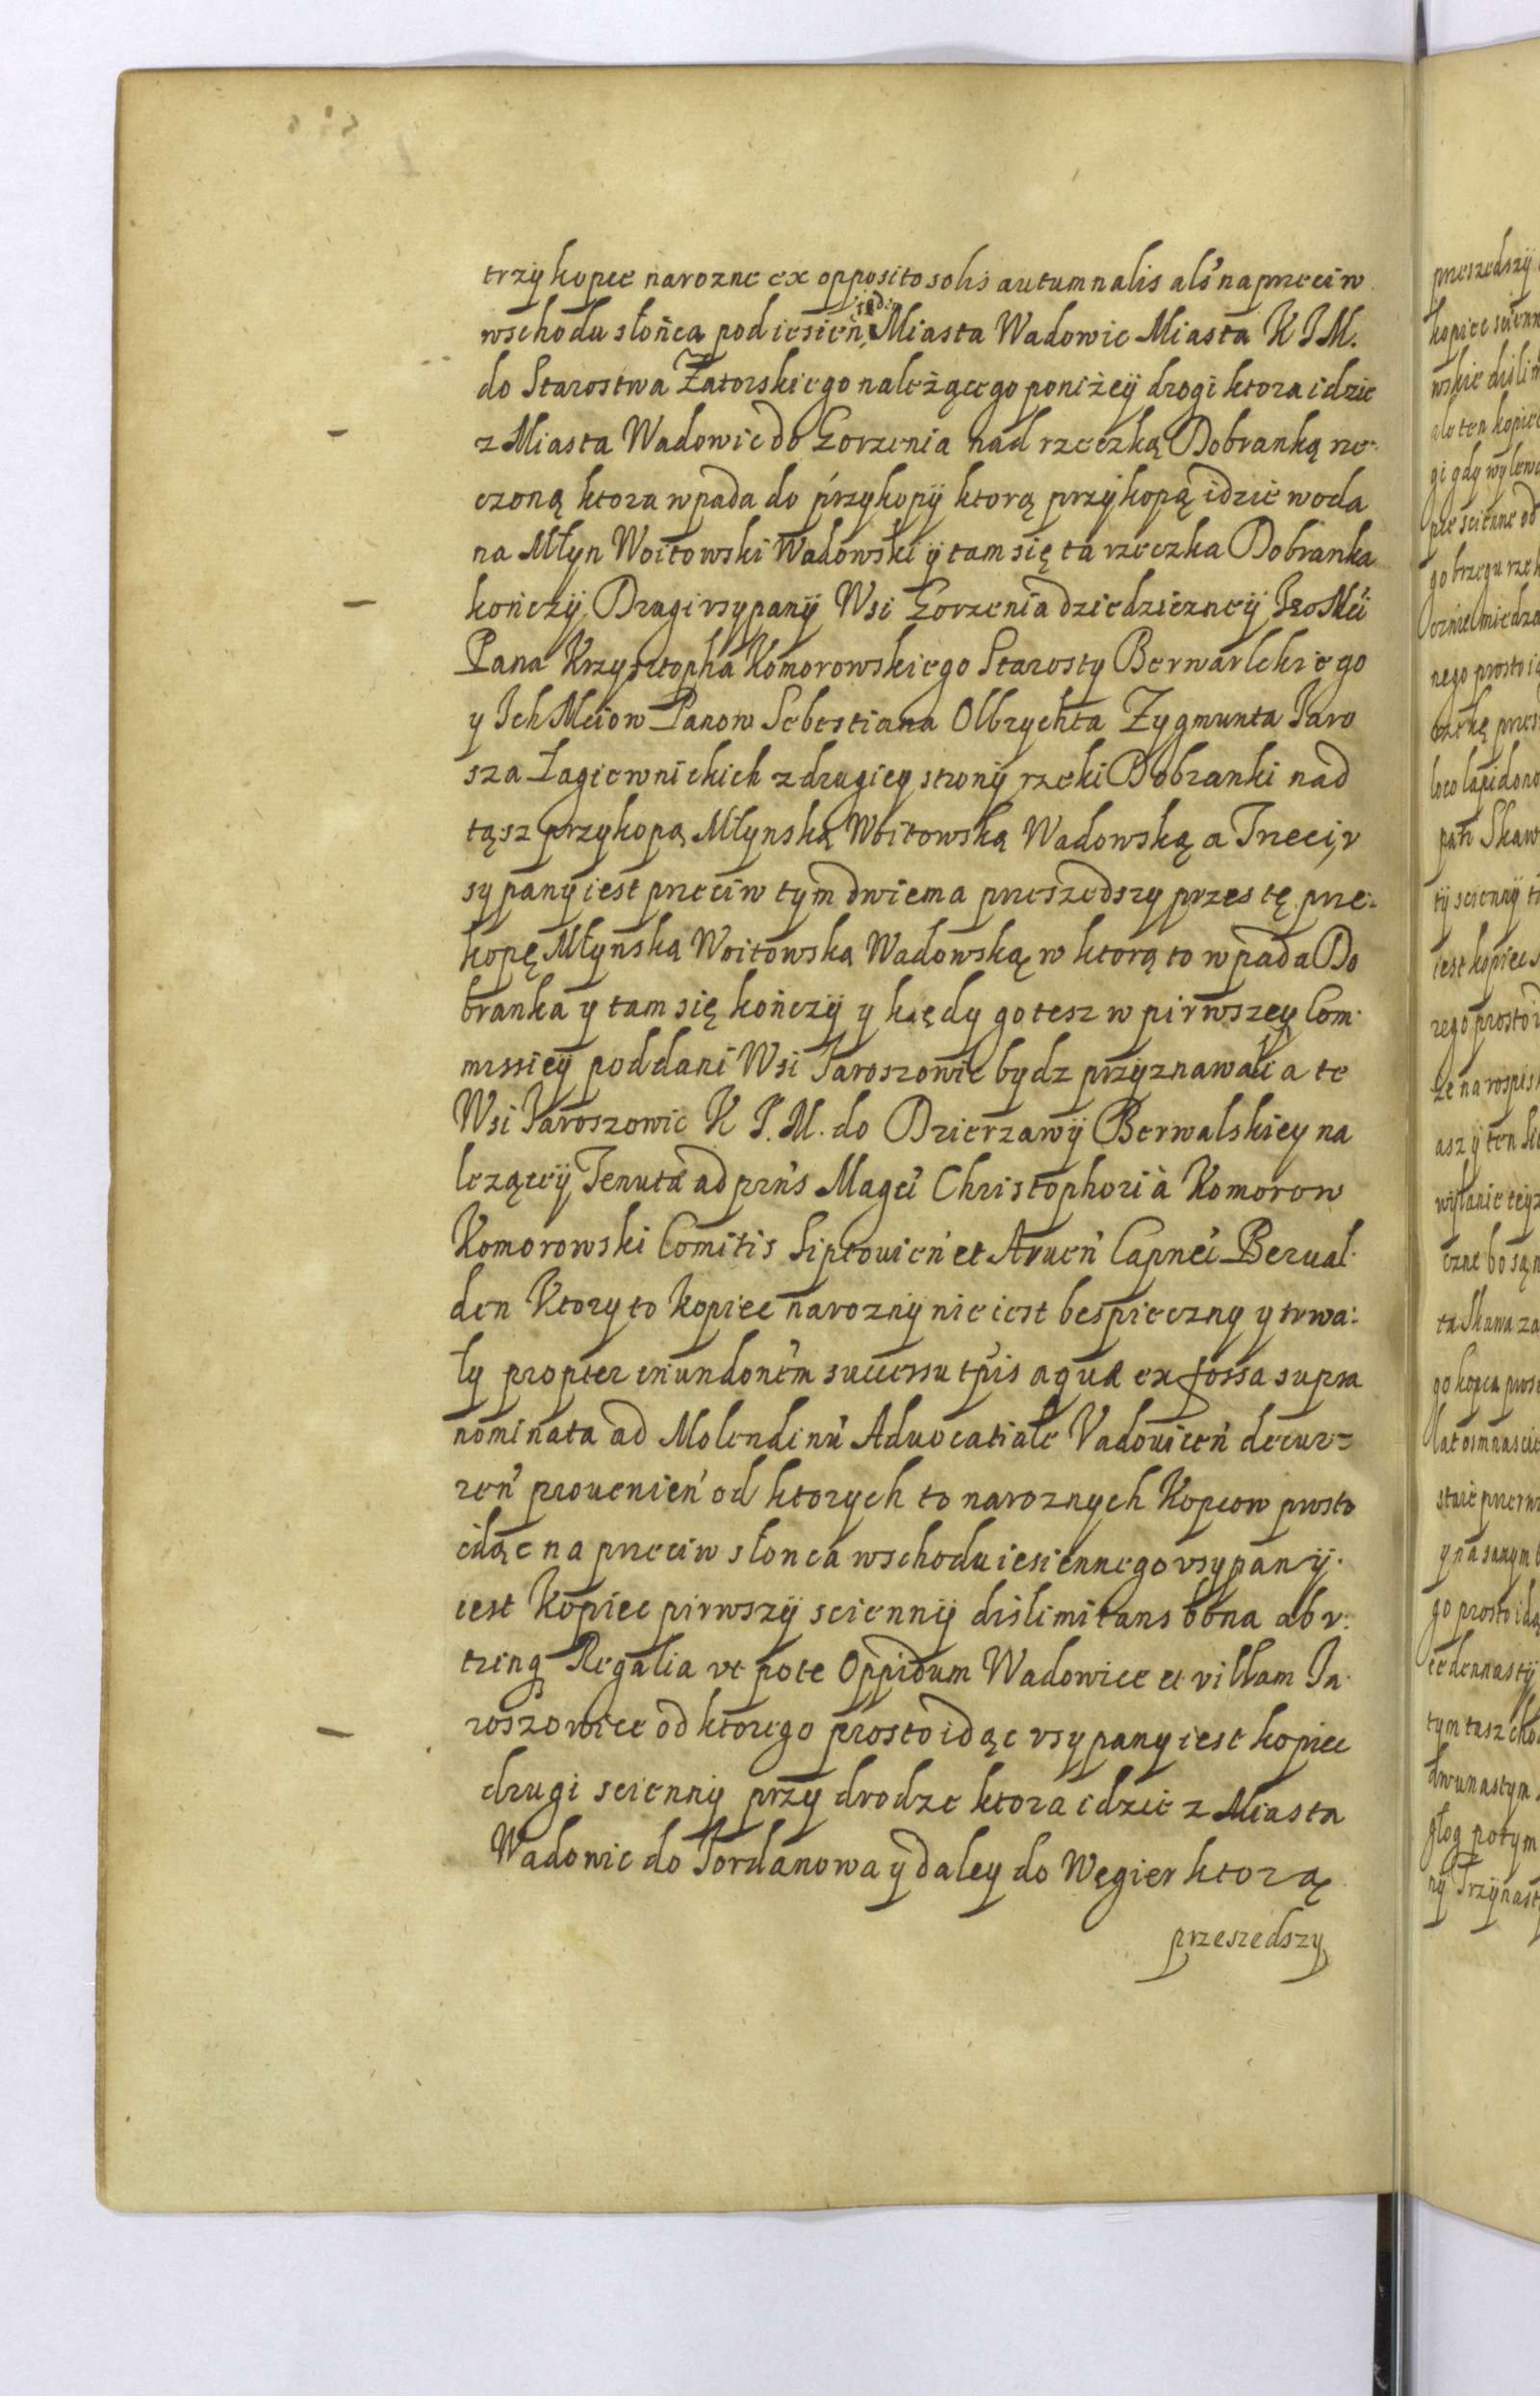 trzy kopce narozne ex opposito solis autumnalis als' naprzeciw
wschodu słońca pod iesień, Miasta Wadowic Miasta K I M.
do Starostwa Zatorskiego należącego poniżeÿ drogi ktora idzie
z Miasta Wadowic do Gorzenia nad rzeczką Dobranką rze:
czoną ktora wpada do przykopÿ ktorą przÿkopą idzie woda
na Młyn Woitowski Wadowski ÿ tam się ta rzeczka Dobranka
kończÿ Drugi vsypanÿ Wsi Gorzenia dziedziczneÿ Iego Mći
Pana Krzysztopha Komorowskiego Starosty Berwaldskiego
y Ich Mciow Panow Sebestiana Olbrychta Zygmunta Iaro
sza Łagiewnickich z drugiey stronÿ rzeki Dobranki nad
tąsz przykopą Młynską Woitowską Wadowską a Trzeci v
sypanÿ iest przeciw tym dwiema przeszedszy przes tę prze:
kopę Młynską Woitowską Wadowską w ktorą to wpada Do
branka y tam się kończÿ y kiędy go tesz w pirwszey Com:
missieÿ poddani Wsi Iaroszowic bydz przyznawali a te
Wsi Iaroszowic K I. M. do Dzierzawÿ Berwalskiey na
leząceÿ Tenutæ ad prńs Magći Christophori à Komorow
Komorowski Comitis Liptouień et Arueń Capneći Berual:
den Ktory to Kopiec naroznÿ nie iest bespieczny y trwa:
ły propter inundoném successu tp̃is aquæ ex fossa supra
nominata ad Molendinu' Aduocatiale Vadouicień decur=
reń prouenień od ktorych to naroznych Kopcow prosto
idąc na przeciw słonca wschodu iesiennego vsypanÿ.
iest Kopiec pirwszÿ sciennÿ dislimitans bona ab v:
trinq Regalia vt pote Oppidum Wadowice et villam Ia:
roszowice od ktorego prosto idąc vsypany iest kopiec
drugi sciennÿ przÿ drodze ktora idzie z Miasta
Wadowic do Iordanowa ÿ daley do Węgier ktorą
przeszedszy